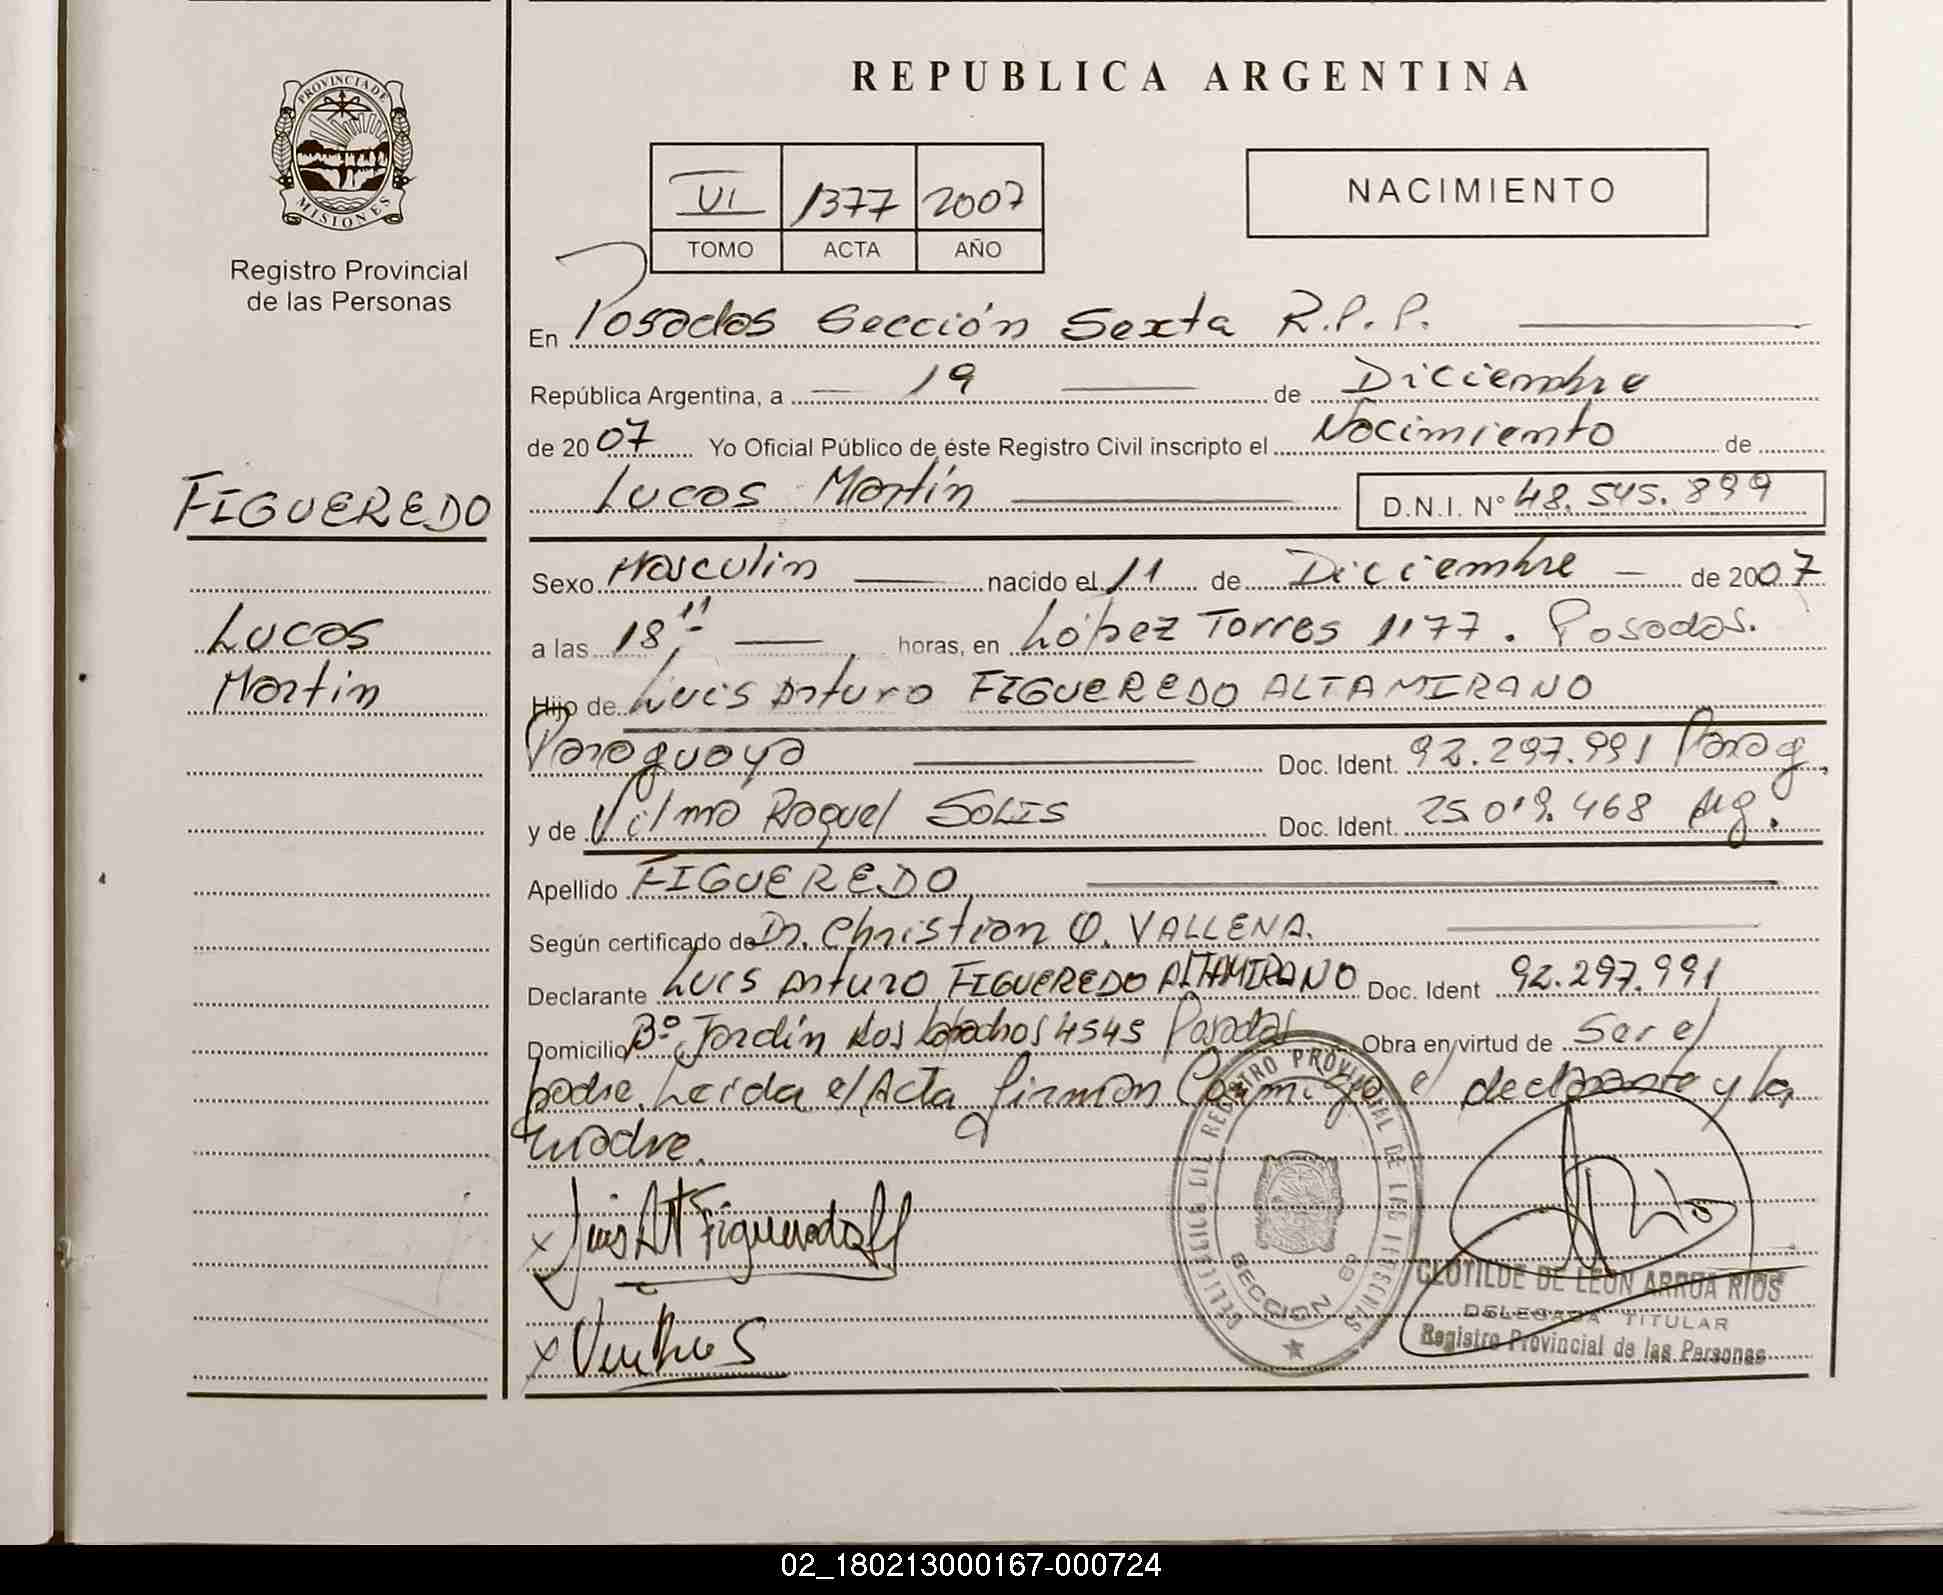 PROVINCIA DE
MISIONES
Registro Provincial
de las Personas
FIGUEREDO
Lucas
Martín
REPUBLICA ARGENTINA
VI 1377 2007
TOMO ACTA AÑO
NACIMIENTO
En Posadas Sección Sexta R.P.P.
República Argentina, a 19 de Diciembre
de 2007 Yo Oficial Público de éste Registro Civil inscripto el Nacimiento de
Lucas Martín D.N.I. N° 48.545.899
Sexo Masculin nacido el 11 de Diciembre de 2007
a las 18 horas, en López Torres 1177. Posadas.
Hijo de Luis Arturo FIGUEREDO ALTAMIRANO
Paraguaya Doc. Ident. 92.297.991 Parag.
y de Vilma Raquel SOLIS Doc. Ident. 25.019.468 Arg.
Apellido FIGUEREDO
Según certificado de Dr. Christian O. VALLENA.
Declarante Luis Arturo FIGUEREDO ALTAMIRANO Doc. Ident 92.297.991
Domicilio Bº Jardín Los Lapachos 4545 Posadas Obra en virtud de Ser el
padre. Leida el Acta firman Conmigo el declarante y la
madre.
x Luis Art Figueredo A
x
REGISTRO PROVINCIAL DE LAS
SECCION 6ª
CLOTILDE DE LEON ARRUA RIOS
DELEGADA TITULAR
Registro Provincial de las Personas
02_180213000167-000724